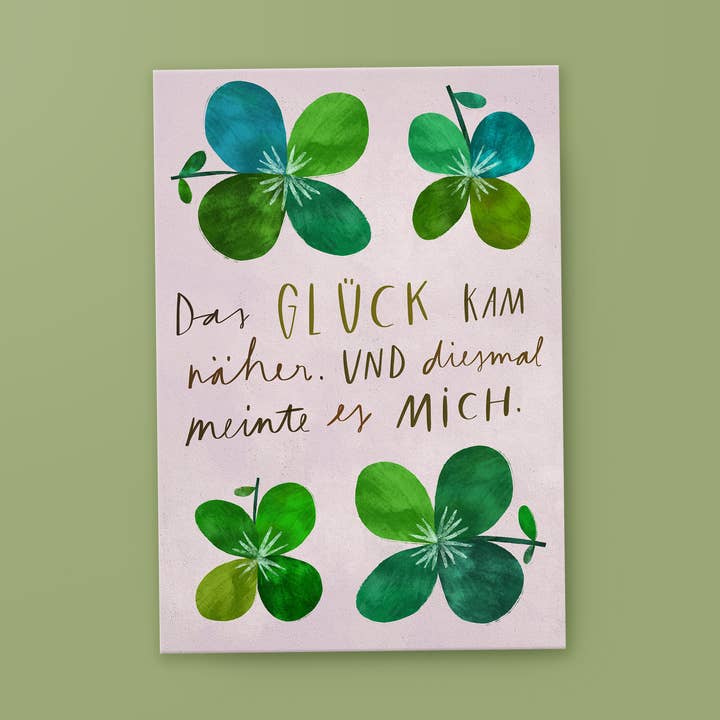 Das GLÜCK KAM
näher. UND diesmal
meinte es MICH.